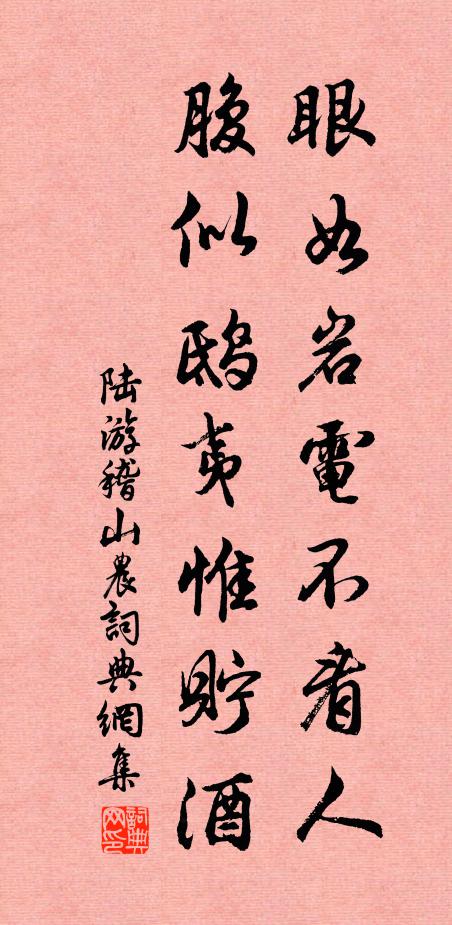 眼如岩電不看人
腹似鴟夷惟貯酒
陆游稽山農詞典網集
詞典网印